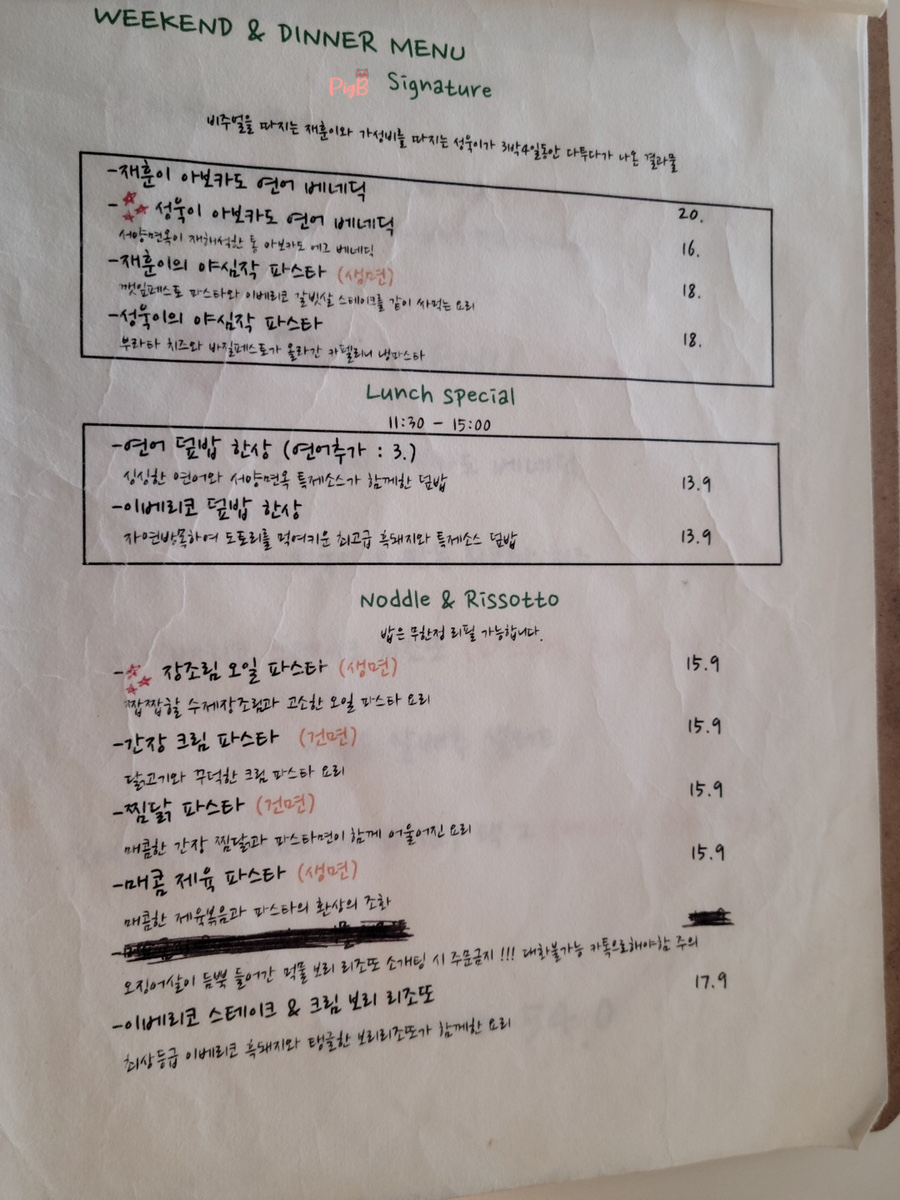 WEEKEND & DINNER MENU
PigB Signature
비주얼을 따지는 재훈이와 가성비를 따지는 성욱이가 3박4일동안 다투다가 나온 결과물
-재훈이 아보카도 연어 베네딕 20.
- 성욱이 아보카도 연어 베네딕 16.
서양면옥이 재해석한 통 아보카도 에그 베네딕
-재훈이의 야심작 파스타 (생면) 18.
깻잎페스토 파스타와 이베리코 갈빗살 스테이크를 같이 싸먹는 요리
-성욱이의 야심작 파스타 18.
부라타 치즈와 바질페스토가 올라간 카펠리니 냉파스타
Lunch special
11:30 - 15:00
-연어 덮밥 한상 (연어추가 : 3.)
싱싱한 연어와 서양면옥 특제소스가 함께한 덮밥 13.9
-이베리코 덮밥 한상
자연방목하여 도토리를 먹여키운 최고급 흑돼지와 특제소스 덮밥 13.9
Noddle & Rissotto
밥은 무한정 리필 가능합니다.
- 장조림 오일 파스타 (생면) 15.9
짭짭할 수제장조림과 고소한 오일 파스타 요리
-간장 크림 파스타 (건면) 15.9
닭고기와 꾸덕한 크림 파스타 요리
-찜닭 파스타 (건면) 15.9
매콤한 간장 찜닭과 파스타면이 함께 어울어진 요리
-매콤 제육 파스타 (생면) 15.9
매콤한 제육볶음과 파스타의 환상의 조화
오징어살이 듬뿍 들어간 먹물 보리 리조또 소개팅 시 주문금지 !!! 대화불가능 카톡으로해야함 주의
-이베리코 스테이크 & 크림 보리 리조또 17.9
최상등급 이베리코 흑돼지와 탱글한 보리리조또가 함께한 요리